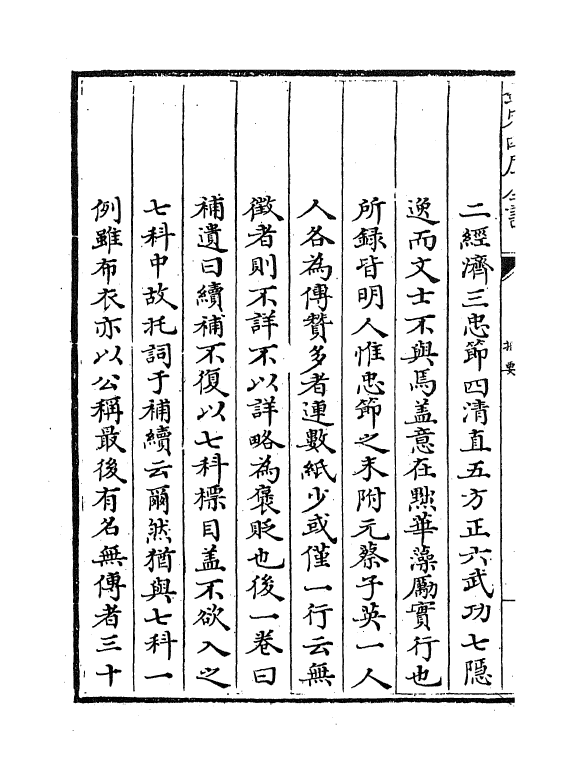 二經濟三忠節四清直五方正六武功七隱
逸而文士不與焉葢意在黜華藻厲實行也
所録皆明人惟忠節之末附元蔡子英一人
人各為傳贊多者連數紙少或僅一行云無
徵者則不詳不以詳略為褒貶也後一卷曰
補遺曰續補不復以七科標目葢不欲入之
七科中故托詞于補續云爾然猶與七科一
例雖布衣亦以公稱最後有名無傳者三十